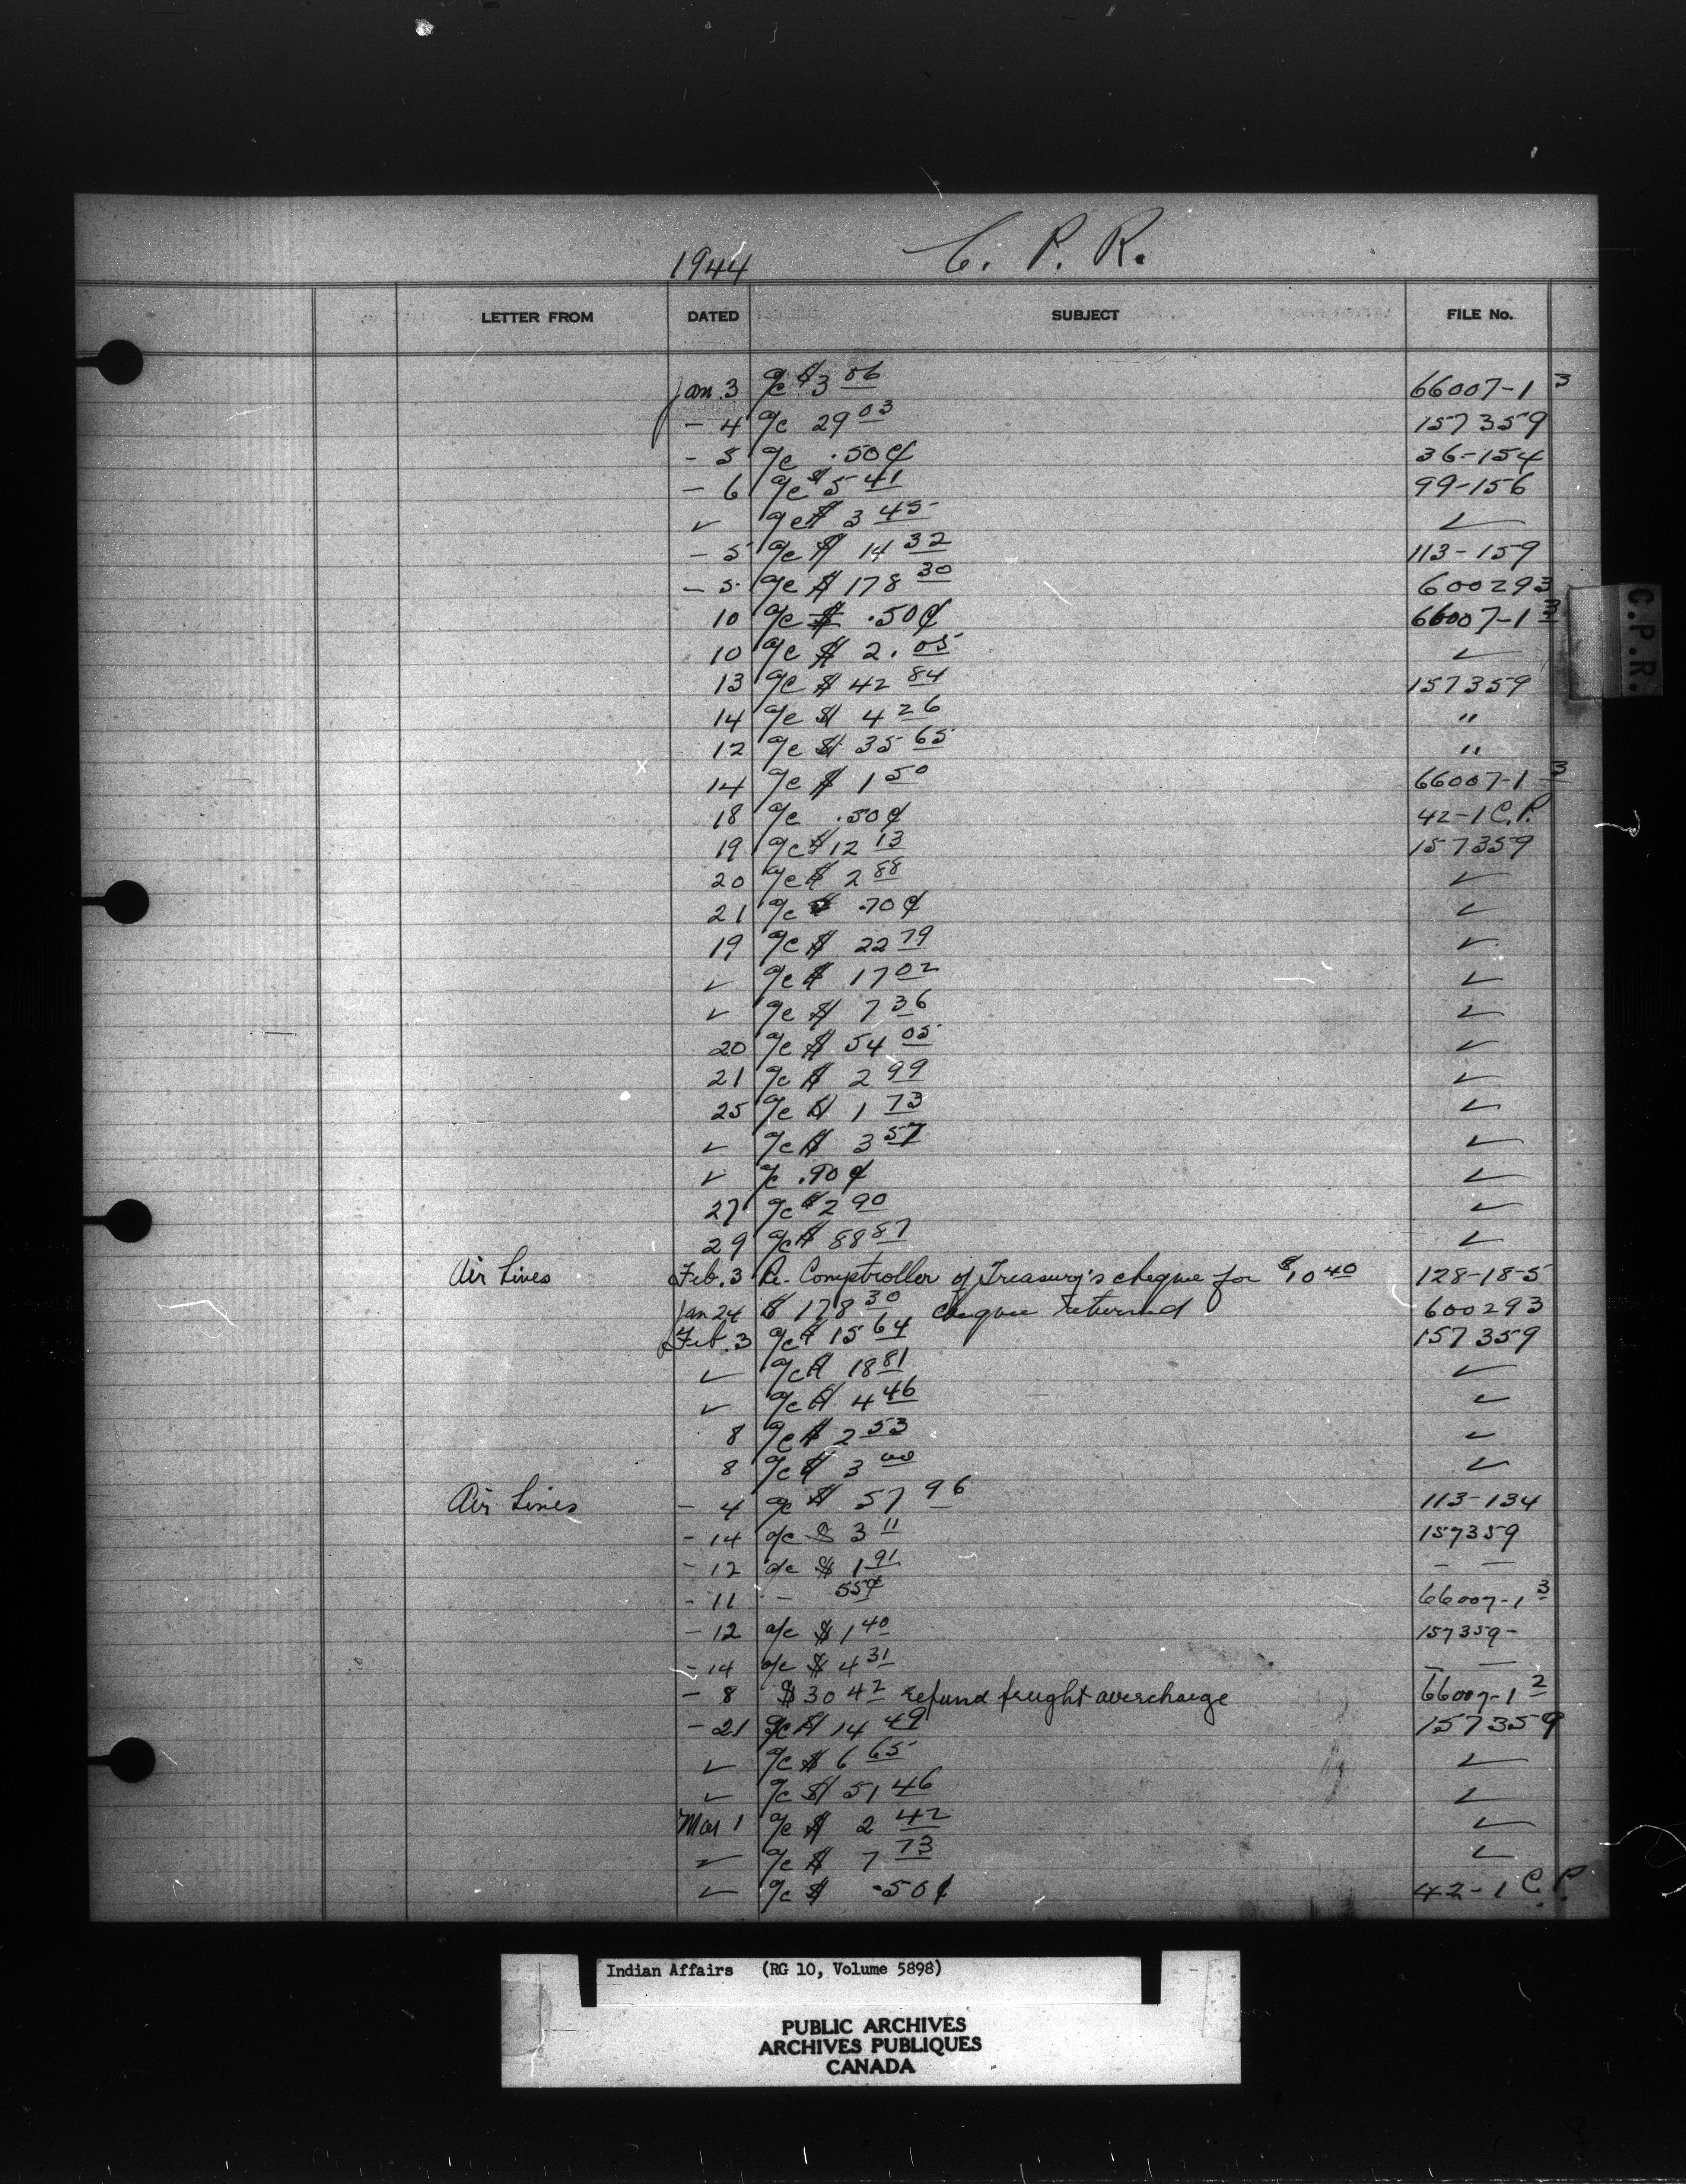 1944 C. P. R.
LETTER FROM DATED SUBJECT FILE No.
Jan. 3 a/c $3 06 66007-1 3
- 4 a/c 29 03 157359
- 5 a/c .50¢ 36-154
- 6 a/c $5 41 99-156
✓ a/c $ 3 45 ✓
- 5 a/c $ 14 32 113-159
- 5 a/c $ 178 30 600293
10 a/c $ .50¢ 66007-1 3
10 a/c $ 2. 05 ✓
13 a/c $ 42 84 157359
14 a/c $ 4 26 "
12 a/c $ 35 65 "
14 a/c $ 1 50 66007-1 3
18 a/c .50¢ 42-1 C.P.
19 a/c $12 13 157359
20 a/c $ 2 88 ✓
21 a/c $ .70¢ ✓
19 a/c $ 22 79 ✓
✓ a/c $ 17 02 ✓
✓ a/c $ 7 36 ✓
20 a/c $ 54 05 ✓
21 a/c $ 2 99 ✓
25 a/c $ 1 73 ✓
✓ a/c $ 3 57 ✓
✓ a/c .90¢ ✓
27 a/c $2 90 ✓
29 a/c $ 88 87 ✓
Air Lines Feb. 3 Re- Comptroller of Treasury's cheque for $10 40 128-18-5
Jan 24 $ 178 30 cheque returned 600293
Feb. 3 a/c $ 15 64 157359
✓ a/c $ 18 81 ✓
✓ a/c $ 4 46 ✓
8 a/c $ 2 53 ✓
8 a/c $ 3 00 ✓
Air Lines - 4 a/c $ 57 96 113-134
- 14 a/c $ 3 11 157359
- 12 a/c $ 1 91 - -
- 11 - 55¢ 66007-1 3
- 12 a/c $ 1 40 157359-
- 14 a/c $ 4 31 - -
- 8 $30 42 refund freight overcharge 66007-1 2
- 21 a/c $ 14 49 157359
✓ a/c $ 6 65 ✓
✓ a/c $ 51 46 ✓
Mar 1 a/c $ 2 42 ✓
✓ a/c $ 7 73 ✓
✓ a/c $ .50¢ 42-1 C.P.
C.P.R.
Indian Affairs (RG 10, Volume 5898)
PUBLIC ARCHIVES
ARCHIVES PUBLIQUES
CANADA